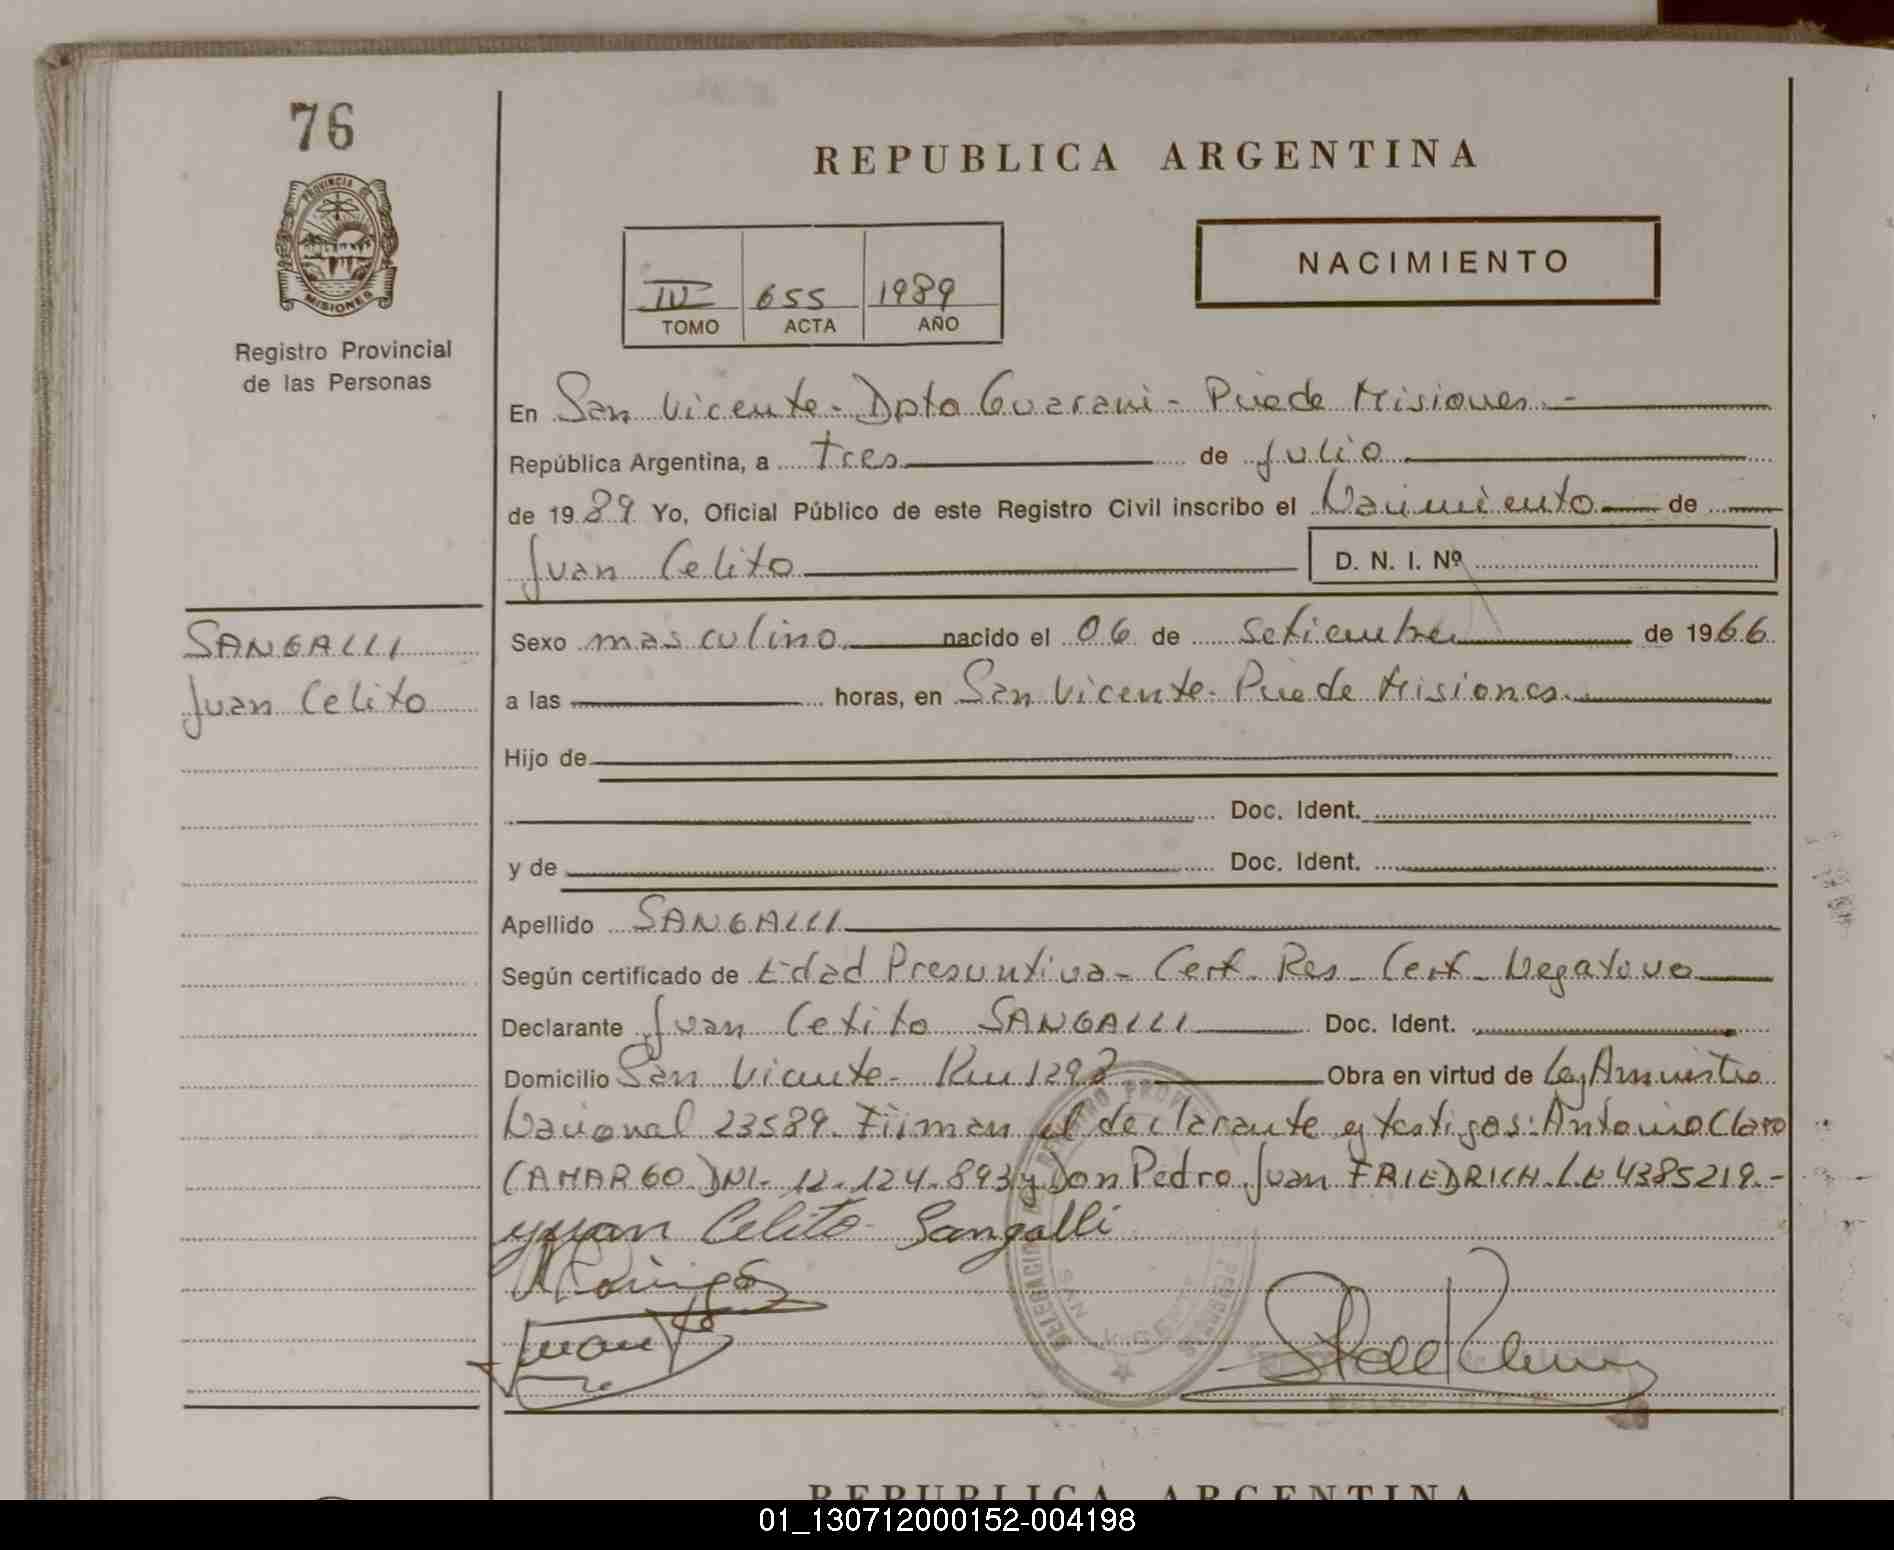 76
REPUBLICA ARGENTINA
PROVINCIA DE MISIONES
Registro Provincial
de las Personas
NACIMIENTO
IV 655 1989
TOMO ACTA AÑO
En San Vicente - Dpto Guarani - Pcia de Misiones -
República Argentina, a tres de Julio
de 1989 Yo, Oficial Público de este Registro Civil inscribo el Nacimiento de
Juan Celito D. N. I. Nº
SANGALLI
Juan Celito
Sexo masculino nacido el 06 de Setiembre de 1966
a las horas, en San Vicente - Pcia de Misiones
Hijo de
Doc. Ident.
y de Doc. Ident.
Apellido SANGALLI
Según certificado de Edad Presuntiva - Cert. Res - Cert - Negativo
Declarante Juan Celito SANGALLI Doc. Ident.
Domicilio San Vicente - Km 1293 Obra en virtud de Ley Amnistia
Nacional 23589. Firman el declarante y testigos: Antonio Claro
CAMARGO DNI - 12.124.893 y Don Pedro Juan FRIEDRICH. LE 4385219.-
Juan Celito Sangalli
REPUBLICA ARGENTINA
01_130712000152-004198